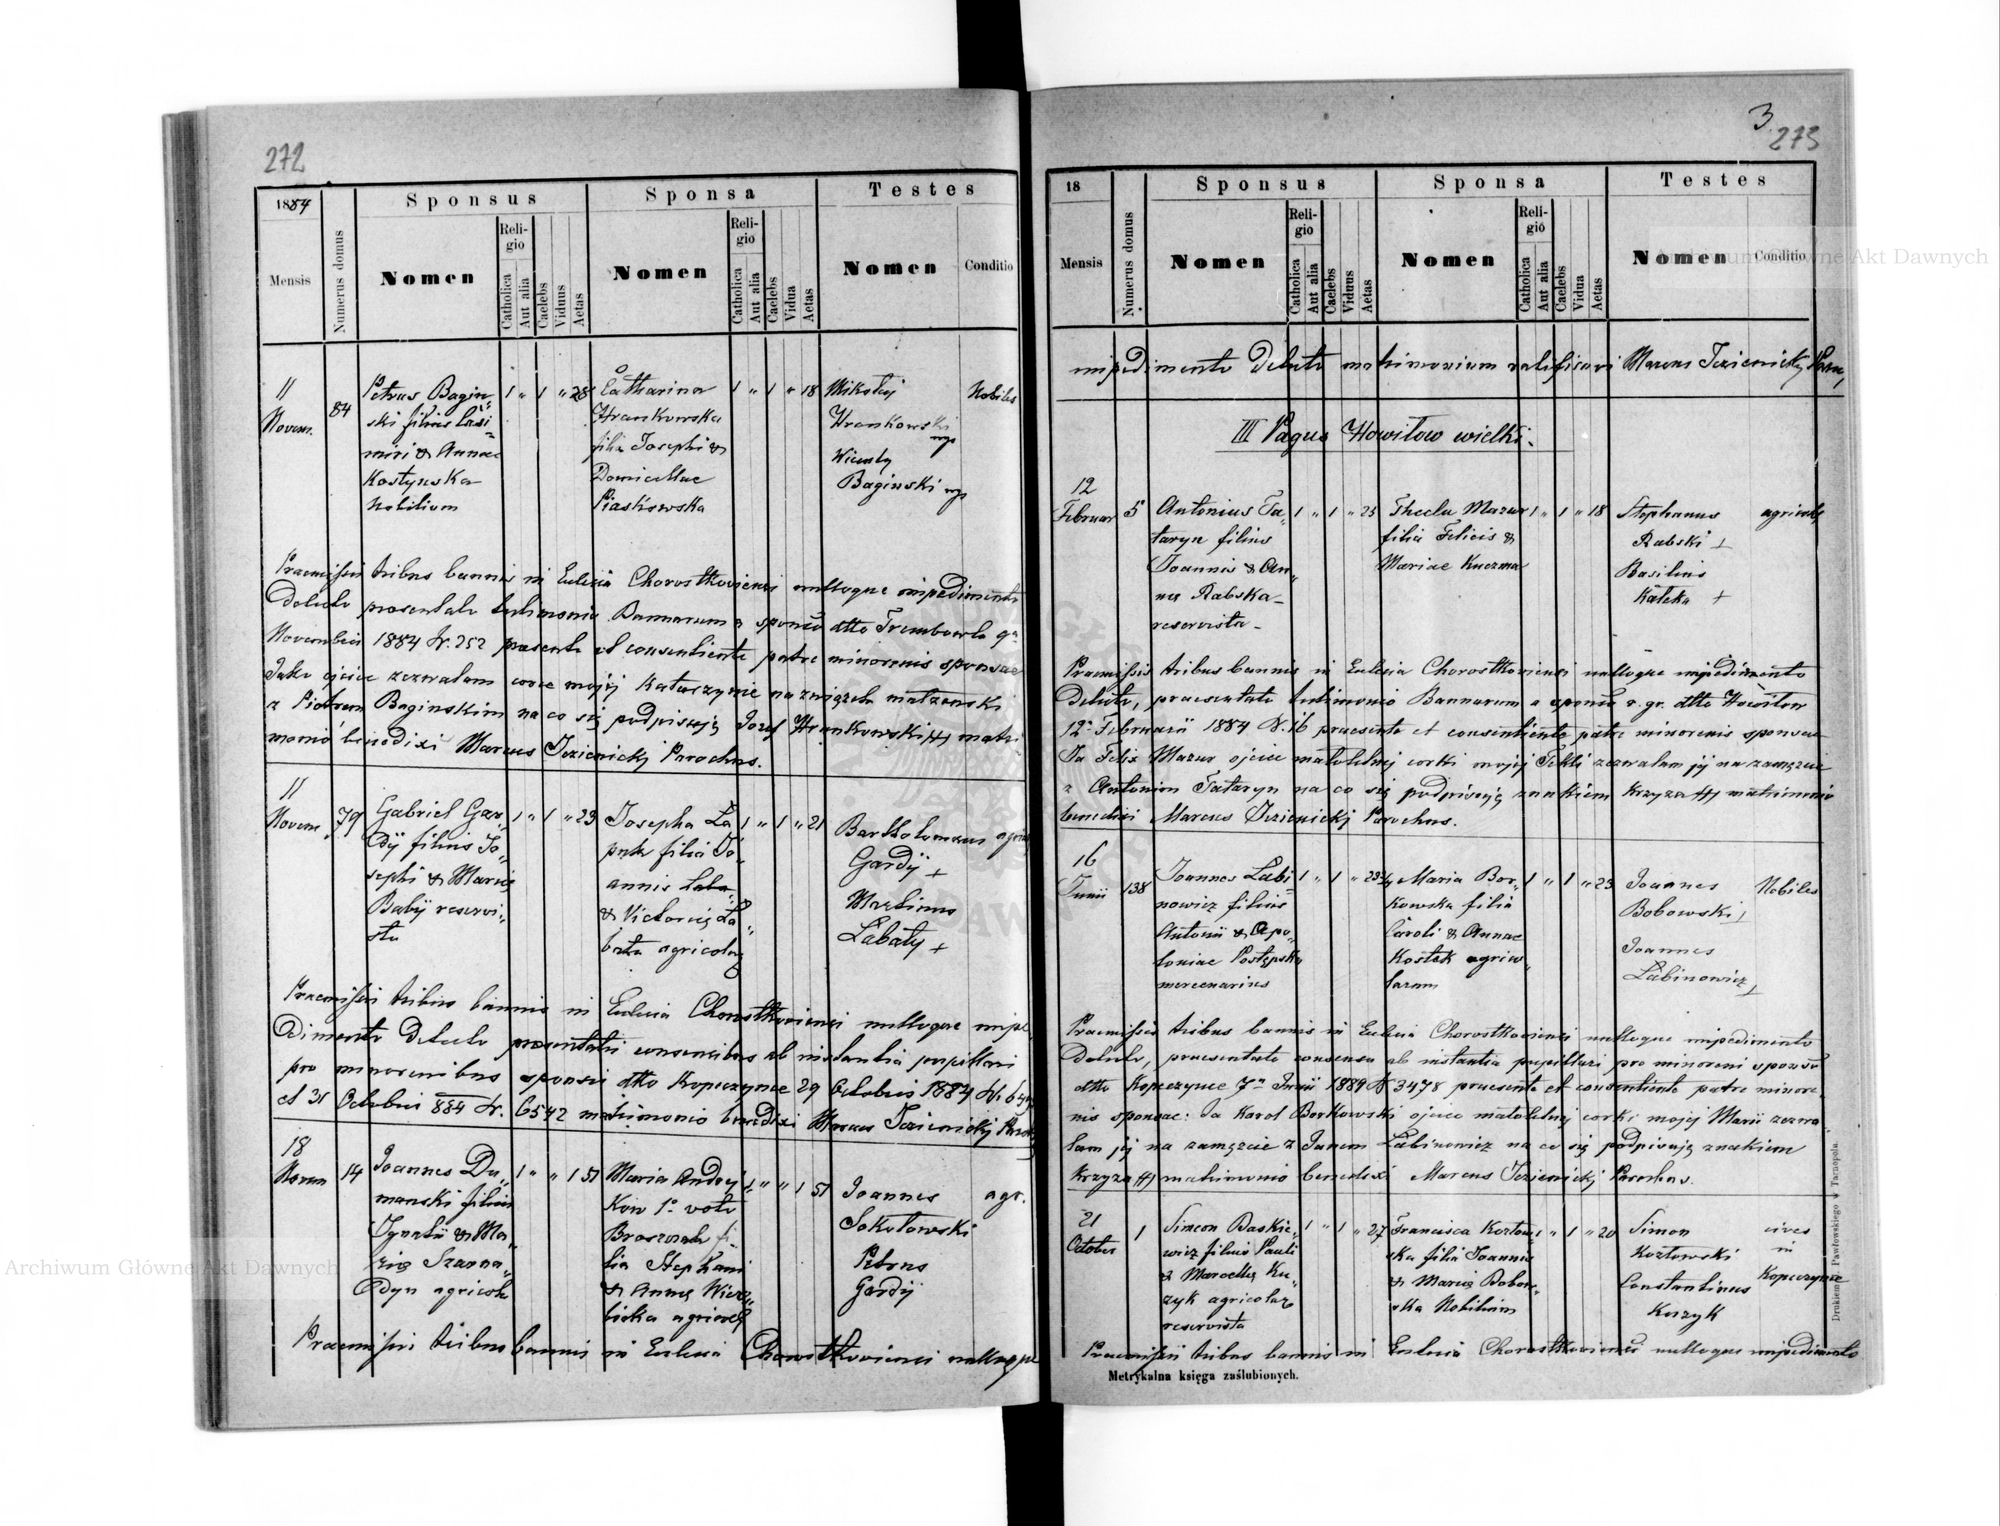 272
1884
Mensis
Numerus domus
Sponsus
Nomen
Religio
Catholica
Aut alia
Caelebs
Viduus
Aetas
Sponsa
Nomen
Religio
Catholica
Aut alia
Caelebs
Vidua
Aetas
Testes
Nomen
Conditio
11
Novem.
84
Petrus Bagin„
ski filius Casi„
miri & Annae
Kostynska
Nobilium
1 „ 1 „ 28
Catharina
Hrankowska
filia Josephi &
Domicellae
Piaskowska
1 „ 1 „ 18
Mikołaj
Hrankowski
mp
Wicenty
Baginski mp
Nobiles
Praemissis tribus bannis in Eclesia Chorostkoviensi nulloque impedimento
Detecto praesentato testimonio Bannorum a sponso dtto Trembowla 9ª
Novembris 1884 N. 252 praesente et consentiente patre minorenis sponsae
Jako ojciec zezwalam corce mojej Katarzynie na związek małzenski
z Piotrem Baginskim na co się podpisuję Jozef Hrankowski +++ matri„
monio benedixi Marcus Jezienicky Parochus.
11
Novem.
79
Gabriel Gar„
dij filius Jo„
sephi & Marię
Babij reservi„
sta
1 „ 1 „ 23
Josepha La„
pata filia Jo„
annis Laba
& Victorię La„
bata agricolaę
1 „ 1 „ 21
Bartholomaeus
Gardij +
Martinus
Labaty +
agric
Praemissis tribus bannis in Eclesia Chorostkoviensi nulloque impe„
dimento Detecto praesentatis consensibus ab instantia pupillari
pro minorenibus sponsis dtto Kopeczynce 29 Octobris 1884 N.
et 31 Octobris 884 N. 6542 matrimonio benedixi Marcus Jezienicky Paroch
18
Novem
14
Joannes Du„
manski filius
Ignatii & Ma„
rię Szarna„
dyn agricola
1 „ „ 1 51
Maria Andrij
Kow 1º voto
filia Stephani
& Annę
agricolę
1 „ „ 1 51
Joannes
Sokołowski
Petrus
Gardij
agr.
Praemissis tribus bannis in Eclesia Chorostkoviensi nulloque
3
273
18
Mensis
Numerus domus
Sponsus
Nomen
Religio
Catholica
Aut alia
Caelebs
Viduus
Aetas
Sponsa
Nomen
Religio
Catholica
Aut alia
Caelebs
Vidua
Aetas
Testes
Nomen
Conditio
impedimento Detecto matrimonium ratificavi Marcus Jezienicky Paro,
III Pagus Howiłow wielki.
12
Februar
5
Antonius Ta„
taryn filius
Joannis & An„
nae Rabska
reservista
1 „ 1 „ 25
Thecla Mazur
filia Felicis &
Mariae Kuczma
1 „ 1 „ 18
Stephanus
Rabski +
Basilius
Kaleka +
agricolę
Praemissis tribus bannis in Eclesia Chorostkoviensi nulloque impedimento
Detecto, praesentato testimonio Bannorum a sponso r. gr. dtto Howiłow
12ª Februarii 1884 N. 16 praesente et consentiente patre minorenis sponsae
Ja Felix Mazur ojciec małoletnej corki mojej Tekli zezwalam jej na zamęzcie
z Antonim Tataryn na co się podpisuję znakiem Krzyza +++ matrimonio
benedixi Marcus Jezienickj Parochus.
16
Junii
138
Joannes Labi„
nowicz filius
Antonii & Apo„
loniae Postępska
mercenarius
1 „ 1 „ 23¾
Maria Bor„
kowska filia
Caroli & Annae
Kostek agrico„
larum
1 „ 1 „ 23
Joannes
Bobowski +
Joannes
Labinowicz
+
Nobiles
Praemissis tribus bannis in Eclesia Chorostkoviensi nulloque impedimento
Detecto, praesentato consensu ab instantia pupillari pro minoreni sponso
dtto Kopeczynce 7ª Junii 1884 N 3478 praesente et consentiente patre minore„
nis sponsae: Ja Karol Borkowski ojciec małoletnej corki mojej Marii zezwa„
lam jej na zamęzcie z Janem Labinowicz na co się podpisuję znakiem
Krzyza +++ matrimonio benedixi Marcus Jezienickj Parochus.
21
October
1
Simeon Baskie„
wicz filius Pauli
& Marcellę Ku„
zyk agricolae
reservista
1 „ 1 „ 27
Francisca Kozłow„
ska filia Joannis
& Marię Bobow„
ska Nobilium
1 „ 1 „ 20
Simon
Kozłowski
Constantinus
Kuzyk
cives
in
Kopeczynce
Praemissis tribus bannis in Eclesia Chorostkoviensi nulloque impedimento
Metrykalna księga zaślubionych.
Drukiem J. Pawłowskiego w Tarnopolu.
Archiwum Główne Akt Dawnych
Archiwum Główne Akt Dawnych